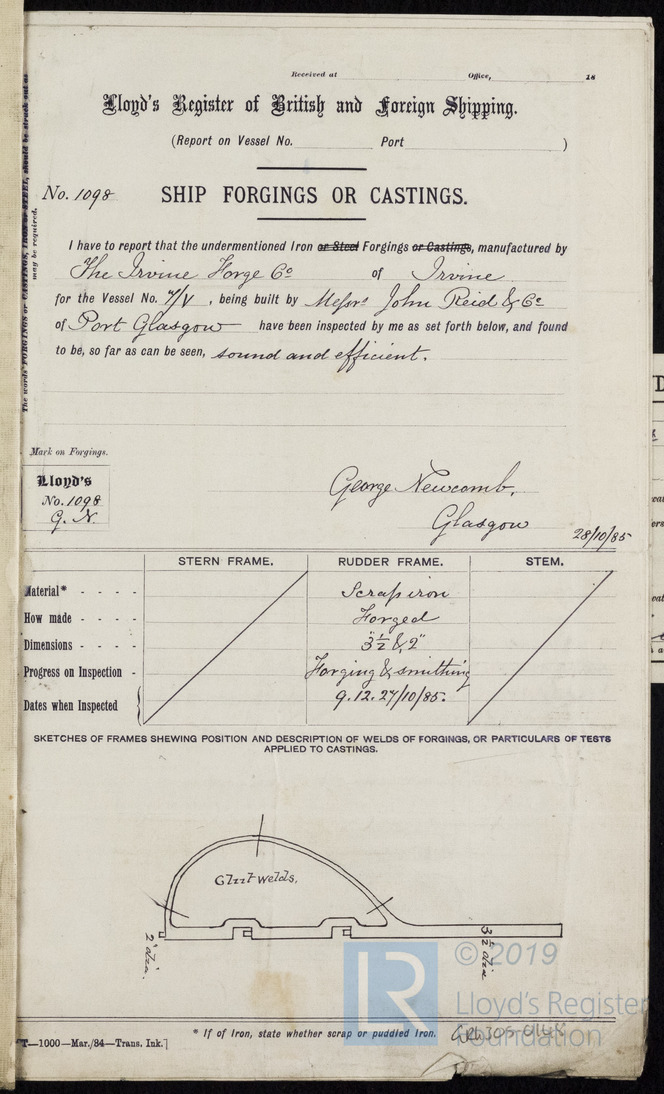 Received at Office, 18
Lloyd's Register of British and Foreign Shipping.
(Report on Vessel No. Port )
No. 1098 SHIP FORGINGS OR CASTINGS.
I have to report that the undermentioned Iron or Steel Forgings or Castings, manufactured by
The Irvine Forge Co of Irvine
for the Vessel No. 7/V, being built by Messrs John Reid & Co
of Port Glasgow have been inspected by me as set forth below, and found
to be, so far as can be seen, sound and efficient.
The words FORGINGS or CASTINGS, IRON or STEEL, should be struck out as
may be required.
Mark on Forgings.
Lloyd's
No. 1098
G. N.
George Newcomb,
Glasgow
28/10/85
STERN FRAME. RUDDER FRAME. STEM.
Material* - - - - Scrap iron
How made - - - - Forged
Dimensions - - - - 3½" & 2"
Progress on Inspection - Forging & smithing
Dates when Inspected 9.12.27/10/85.
SKETCHES OF FRAMES SHEWING POSITION AND DESCRIPTION OF WELDS OF FORGINGS, OR PARTICULARS OF TESTS
APPLIED TO CASTINGS.
welds,
2" dia.
3½ dia
© 2019
LR
Lloyd's Register
Foundation
* If of Iron, state whether scrap or puddled Iron.
T—1000—Mar./84—Trans. Ink.]